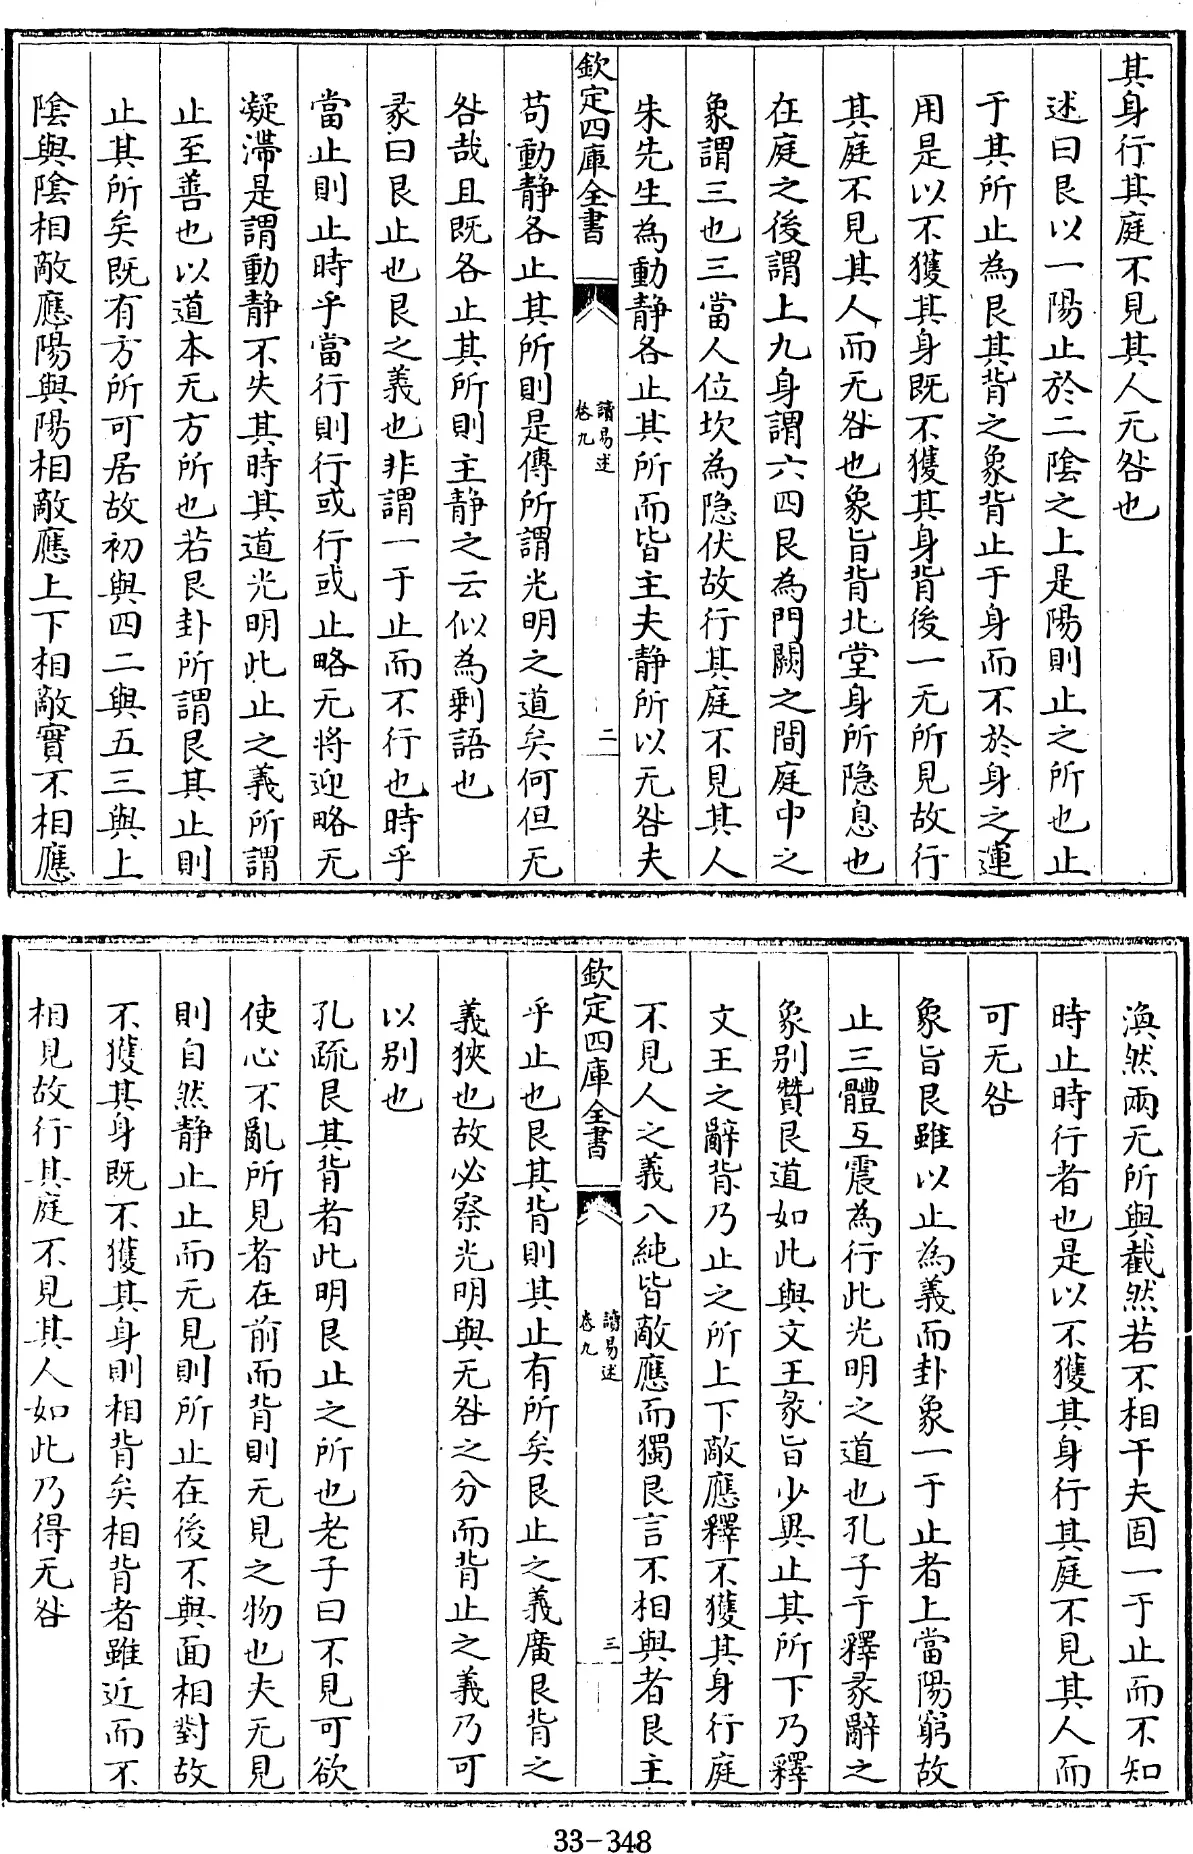 其身行其庭不見其人无咎也
述曰艮以一陽止於二陰之上是陽則止之所也止
于其所止為艮其背之象背止于身而不於身之運
用是以不獲其身既不獲其身背後一无所見故行
其庭不見其人而无咎也象旨背北堂身所隐息也
在庭之後謂上九身謂六四艮為門闕之間庭中之
象謂三也三當人位坎為隐伏故行其庭不見其人
朱先生為動静各止其所而皆主夫静所以无咎夫
欽定四庫全書
讀易述
卷九
二
苟動静各止其所則是傳所謂光明之道矣何但无
咎哉且既各止其所則主静之云似為剩語也
彖曰艮止也艮之義也非謂一于止而不行也時乎
當止則止時乎當行則行或行或止略无将迎略无
凝滯是謂動静不失其時其道光明此止之義所謂
止至善也以道本无方所也若艮卦所謂艮其止則
止其所矣既有方所可居故初與四二與五三與上
陰與陰相敵應陽與陽相敵應上下相敵實不相應
渙然兩无所與截然若不相干夫固一于止而不知
時止時行者也是以不獲其身行其庭不見其人而
可无咎
象旨艮雖以止為義而卦象一于止者上當陽窮故
止三體互震為行此光明之道也孔子于釋彖辭之
象別贊艮道如此與文王彖旨少異止其所下乃釋
文王之辭背乃止之所上下敵應釋不獲其身行庭
不見人之義八純皆敵應而獨艮言不相與者艮主
欽定四庫全書
讀易述
卷九
三
乎止也艮其背則其止有所矣艮止之義廣艮背之
義狹也故必察光明與无咎之分而背止之義乃可
以别也
孔疏艮其背者此明艮止之所也老子曰不見可欲
使心不亂所見者在前而背則无見之物也夫无見
則自然静止止而无見則所止在後不與面相對故
不獲其身既不獲其身則相背矣相背者雖近而不
相見故行其庭不見其人如此乃得无咎
33-348